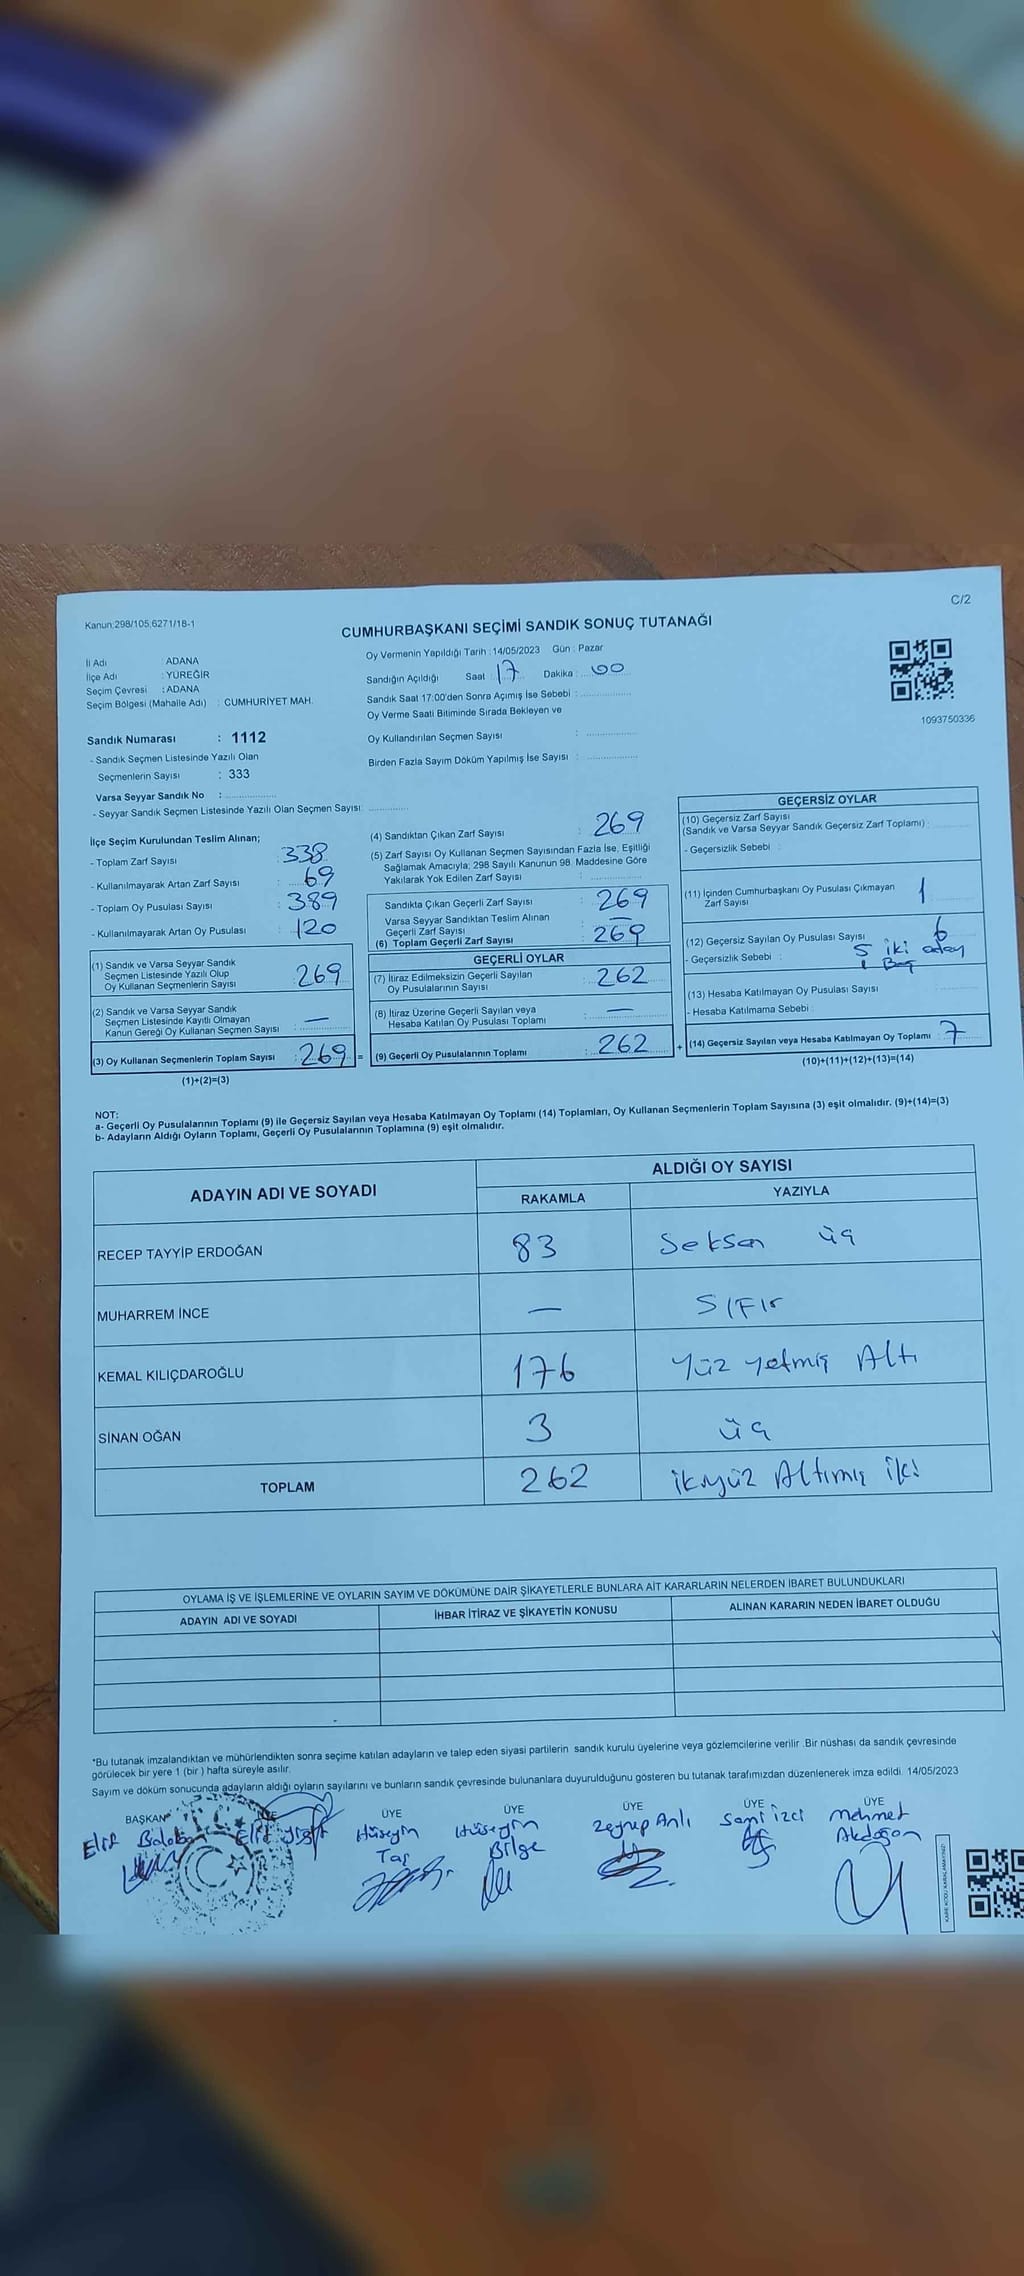 Kanun:298/105,6271/18-1
C/2
CUMHURBAŞKANI SEÇİMİ SANDIK SONUÇ TUTANAĞI
İl Adı : ADANA
İlçe Adı : YÜREĞİR
Seçim Çevresi : ADANA
Seçim Bölgesi (Mahalle Adı) : CUMHURİYET MAH.
Oy Vermenin Yapıldığı Tarih : 14/05/2023 Gün : Pazar
Sandığın Açıldığı Saat : 17 Dakika : 00
Sandık Saat 17:00'den Sonra Açımış İse Sebebi :
Oy Verme Saati Bitiminde Sırada Bekleyen ve
Oy Kullandırılan Seçmen Sayısı :
Birden Fazla Sayım Döküm Yapılmış İse Sayısı :
1093750336
Sandık Numarası : 1112
- Sandık Seçmen Listesinde Yazılı Olan
Seçmenlerin Sayısı : 333
Varsa Seyyar Sandık No :
- Seyyar Sandık Seçmen Listesinde Yazılı Olan Seçmen Sayısı:
İlçe Seçim Kurulundan Teslim Alınan;
- Toplam Zarf Sayısı : 338
- Kullanılmayarak Artan Zarf Sayısı : 69
- Toplam Oy Pusulası Sayısı : 389
- Kullanılmayarak Artan Oy Pusulası : 120
(1) Sandık ve Varsa Seyyar Sandık
Seçmen Listesinde Yazılı Olup
Oy Kullanan Seçmenlerin Sayısı : 269
(2) Sandık ve Varsa Seyyar Sandık
Seçmen Listesinde Kayıtlı Olmayan
Kanun Gereği Oy Kullanan Seçmen Sayısı : —
(3) Oy Kullanan Seçmenlerin Toplam Sayısı : 269 =
(1)+(2)=(3)
(4) Sandıktan Çıkan Zarf Sayısı : 269
(5) Zarf Sayısı Oy Kullanan Seçmen Sayısından Fazla İse, Eşitliği
Sağlamak Amacıyla; 298 Sayılı Kanunun 98. Maddesine Göre
Yakılarak Yok Edilen Zarf Sayısı :
Sandıkta Çıkan Geçerli Zarf Sayısı : 269
Varsa Seyyar Sandıktan Teslim Alınan
Geçerli Zarf Sayısı : —
(6) Toplam Geçerli Zarf Sayısı : 269
GEÇERLİ OYLAR
(7) İtiraz Edilmeksizin Geçerli Sayılan
Oy Pusulalarının Sayısı : 262
(8) İtiraz Üzerine Geçerli Sayılan veya
Hesaba Katılan Oy Pusulası Toplamı : —
(9) Geçerli Oy Pusulalarının Toplamı : 262 +
GEÇERSİZ OYLAR
(10) Geçersiz Zarf Sayısı
(Sandık ve Varsa Seyyar Sandık Geçersiz Zarf Toplamı) :
- Geçersizlik Sebebi :
(11) İçinden Cumhurbaşkanı Oy Pusulası Çıkmayan
Zarf Sayısı 1
(12) Geçersiz Sayılan Oy Pusulası Sayısı 6
- Geçersizlik Sebebi : 5 iki aday
1 Boş
(13) Hesaba Katılmayan Oy Pusulası Sayısı :
- Hesaba Katılmama Sebebi :
(14) Geçersiz Sayılan veya Hesaba Katılmayan Oy Toplamı : 7
(10)+(11)+(12)+(13)=(14)
NOT:
a- Geçerli Oy Pusulalarının Toplamı (9) ile Geçersiz Sayılan veya Hesaba Katılmayan Oy Toplamı (14) Toplamları, Oy Kullanan Seçmenlerin Toplam Sayısına (3) eşit olmalıdır. (9)+(14)=(3)
b- Adayların Aldığı Oyların Toplamı, Geçerli Oy Pusulalarının Toplamına (9) eşit olmalıdır.
ADAYIN ADI VE SOYADI
ALDIĞI OY SAYISI
RAKAMLA YAZIYLA
RECEP TAYYİP ERDOĞAN 83 Seksen üç
MUHARREM İNCE — SIFIr
KEMAL KILIÇDAROĞLU 176 Yüz yetmiş Altı
SİNAN OĞAN 3 üç
TOPLAM 262 ikiyüz Altımış iki
OYLAMA İŞ VE İŞLEMLERİNE VE OYLARIN SAYIM VE DÖKÜMÜNE DAİR ŞİKAYETLERLE BUNLARA AİT KARARLARIN NELERDEN İBARET BULUNDUKLARI
ADAYIN ADI VE SOYADI İHBAR İTİRAZ VE ŞİKAYETİN KONUSU ALINAN KARARIN NEDEN İBARET OLDUĞU
*Bu tutanak imzalandıktan ve mühürlendikten sonra seçime katılan adayların ve talep eden siyasi partilerin sandık kurulu üyelerine veya gözlemcilerine verilir .Bir nüshası da sandık çevresinde
görülecek bir yere 1 (bir ) hafta süreyle asılır.
Sayım ve döküm sonucunda adayların aldığı oyların sayılarını ve bunların sandık çevresinde bulunanlara duyurulduğunu gösteren bu tutanak tarafımızdan düzenlenerek imza edildi. 14/05/2023
BAŞKAN ÜYE ÜYE ÜYE ÜYE ÜYE
Elif Elif Yiğit Hüseyin Taş Hüseyin Bilge Zeynep Anlı Sami İzci Mehmet Akdoğan